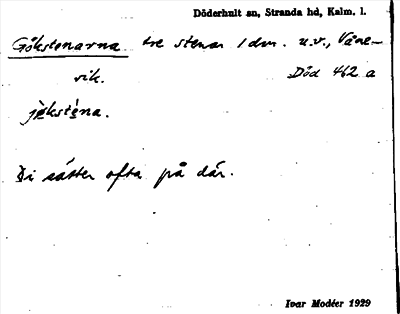 Döderhult sn, Stranda hd, Kalm. l.
Gökstenarna tre stenar i dm. u.v., Våne-
vik. Död 462 a
jø̀kstὲna.
Di sätter ofta på där.
Ivar Modéer 1929